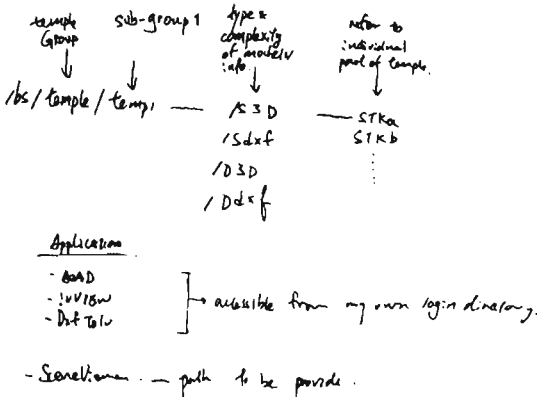 temple Group
sub-group 1
type & complexity of model info.
refer to individual part of temple.
/bs/temple/temp1 — /S3D — STKa
/Sdxf STKb
/D3D
/Ddxf
Application
- AcAD
- ivview
- Dxf To Iv
accessible from my own login directory.
- SceneViewer — path to be provide.